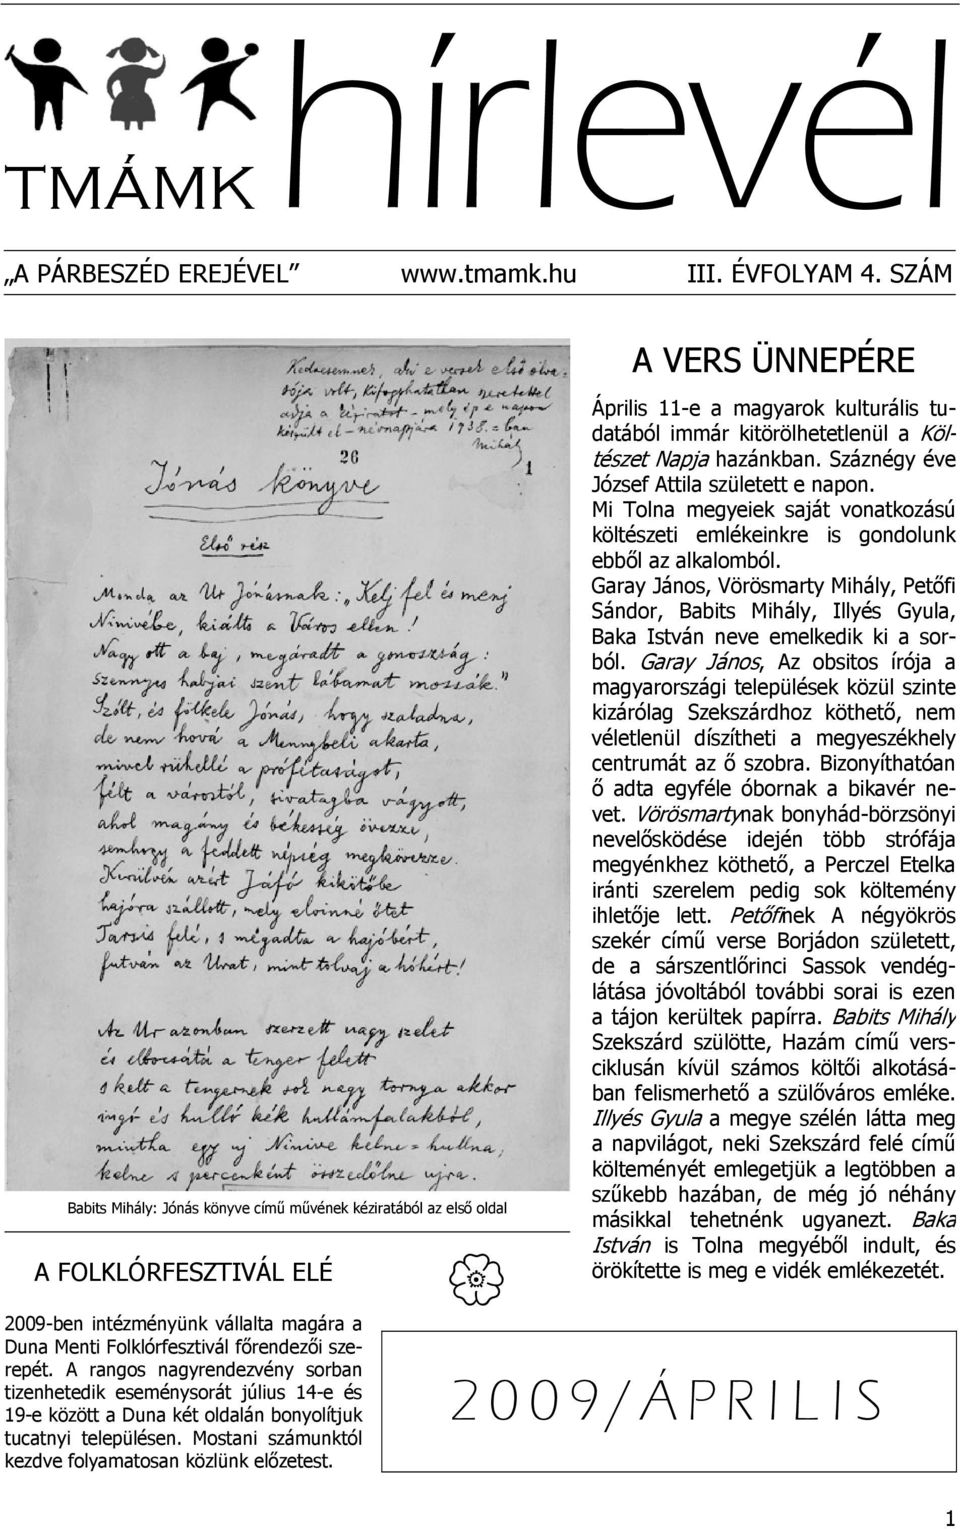 hírlevél
TMÁMK
„A PÁRBESZÉD EREJÉVEL” www.tmamk.hu III. ÉVFOLYAM 4. SZÁM
Kedvesemnek, aki e versek első olva-
sója volt, kifogyhatatlan szeretettel
adja a kéziratot – mely ép e napon
készült el – névnapjára 1938.=ban
Mihály
26
1
Jónás könyve
Első rész
Monda az Ur Jónásnak: „Kelj fel és menj
Ninivébe, kiálts a Város ellen!
Nagy ott a baj, megáradt a gonoszság:
szennyes habjai szent lábamat mossák.”
Szólt, és fölkele Jónás, hogy szaladna,
de nem hová a Mennybeli akarta,
mivel rühellé a prófétaságot,
félt a várostól, sivatagba vágyott,
ahol magány és békesség övezze,
semhogy a feddett népség megkövezze.
Kerülvén azért Jáfó kikötőbe
hajóra szállott, mely elvinné őtet
Tarsis felé, s megadta a hajóbért,
futván az Urat, mint tolvaj a hóhért!
Az Ur azonban szerzett nagy szelet
és elbocsátá a tenger felett
s kelt a tengernek sok nagy tornya akkor
ingó és hulló kék hullámfalakból,
mintha egy uj Ninive kelne=hullna,
kelne s percenként összedőlne ujra.
Babits Mihály: Jónás könyve című művének kéziratából az első oldal
A FOLKLÓRFESZTIVÁL ELÉ
2009-ben intézményünk vállalta magára a
Duna Menti Folklórfesztivál főrendezői sze-
repét. A rangos nagyrendezvény sorban
tizenhetedik eseménysorát július 14-e és
19-e között a Duna két oldalán bonyolítjuk
tucatnyi településen. Mostani számunktól
kezdve folyamatosan közlünk előzetest.
A VERS ÜNNEPÉRE
Április 11-e a magyarok kulturális tu-
datából immár kitörölhetetlenül a Köl-
tészet Napja hazánkban. Száznégy éve
József Attila született e napon.
Mi Tolna megyeiek saját vonatkozású
költészeti emlékeinkre is gondolunk
ebből az alkalomból.
Garay János, Vörösmarty Mihály, Petőfi
Sándor, Babits Mihály, Illyés Gyula,
Baka István neve emelkedik ki a sor-
ból. Garay János, Az obsitos írója a
magyarországi települések közül szinte
kizárólag Szekszárdhoz köthető, nem
véletlenül díszítheti a megyeszékhely
centrumát az ő szobra. Bizonyíthatóan
ő adta egyféle óbornak a bikavér ne-
vet. Vörösmartynak bonyhád-börzsönyi
nevelősködése idején több strófája
megyénkhez köthető, a Perczel Etelka
iránti szerelem pedig sok költemény
ihletője lett. Petőfinek A négyökrös
szekér című verse Borjádon született,
de a sárszentlőrinci Sassok vendég-
látása jóvoltából további sorai is ezen
a tájon kerültek papírra. Babits Mihály
Szekszárd szülötte, Hazám című vers-
ciklusán kívül számos költői alkotásá-
ban felismerhető a szülőváros emléke.
Illyés Gyula a megye szélén látta meg
a napvilágot, neki Szekszárd felé című
költeményét emlegetjük a legtöbben a
szűkebb hazában, de még jó néhány
másikkal tehetnénk ugyanezt. Baka
István is Tolna megyéből indult, és
örökítette is meg e vidék emlékezetét.
2009/ÁPRILIS
1